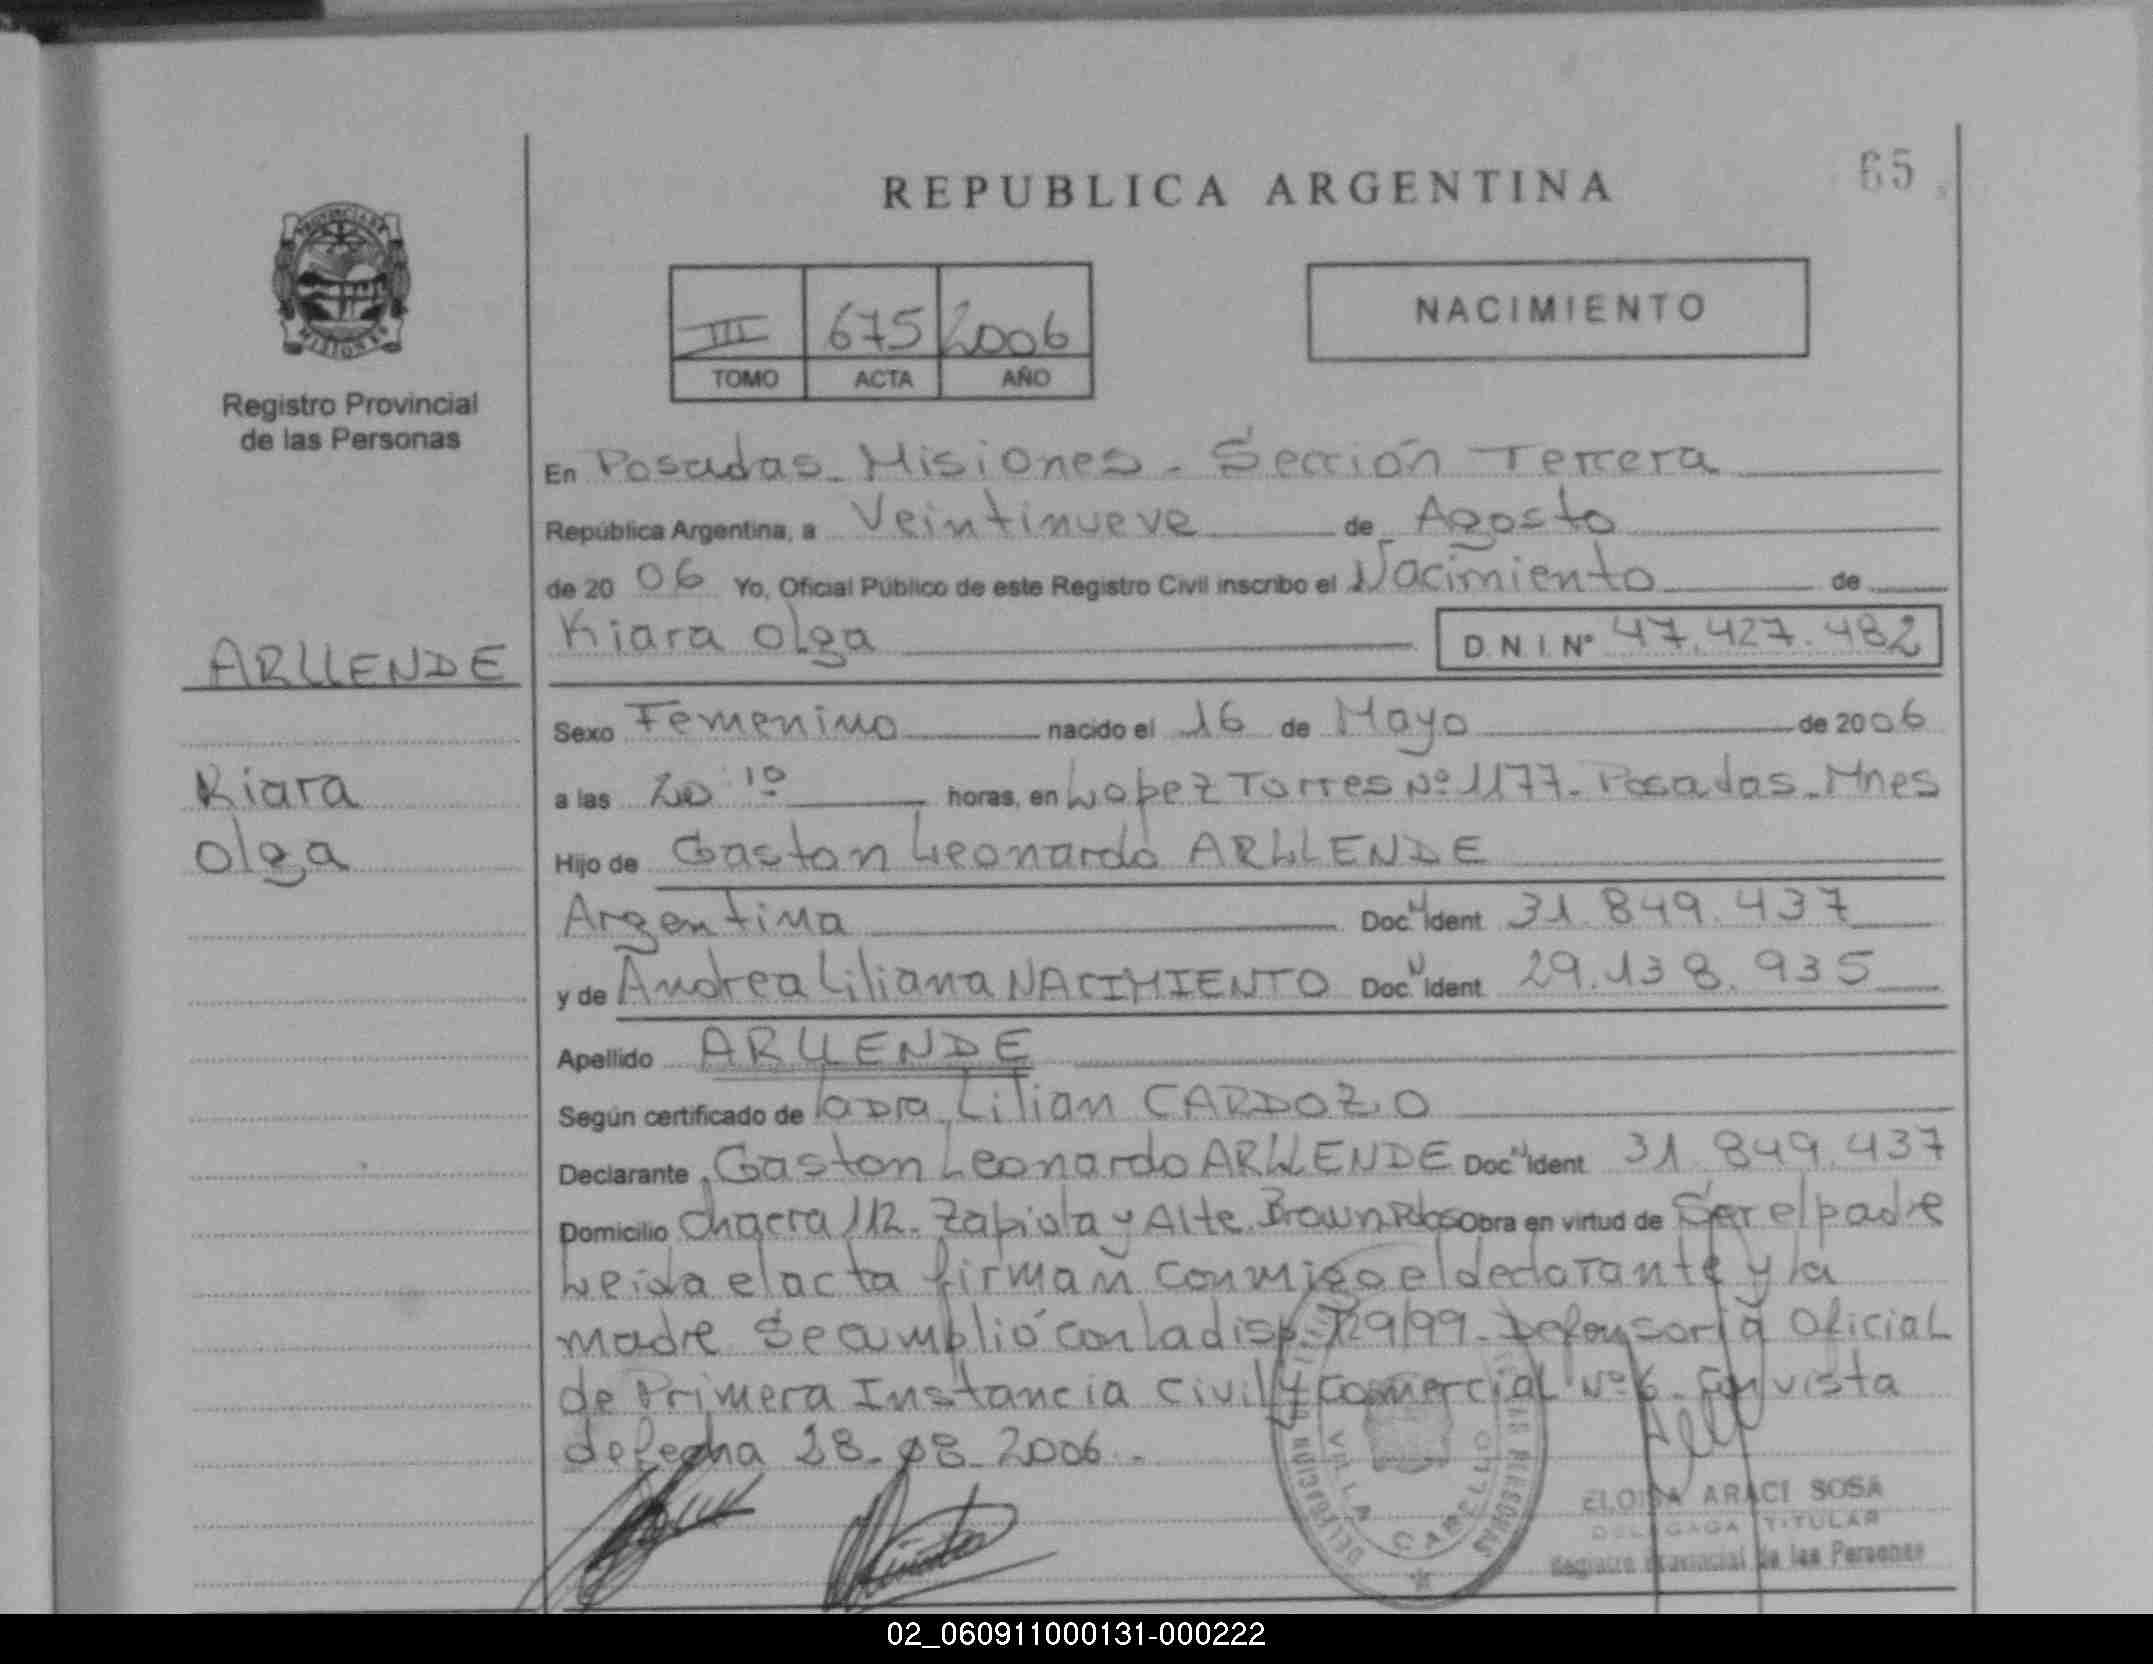 REPUBLICA ARGENTINA
65
PROVINCIA DE
MISIONES
Registro Provincial
de las Personas
III 675 2006
TOMO ACTA AÑO
NACIMIENTO
En Posadas - Misiones - Sección Tercera
República Argentina, a Veintinueve de Agosto
de 20 06 Yo, Oficial Público de este Registro Civil inscribo el Nacimiento de
Kiara Olga D.N.I. Nº 47.427.482
ARLLENDE
Kiara
Olga
Sexo Femenino nacido el 16 de Mayo de 2006
a las 20 10 horas, en Lopez Torres Nº 1177 - Posadas - Mnes
Hijo de Gaston Leonardo ARLLENDE
Argentina Doc. N Ident 31.849.437
y de Andrea Liliana NACIMIENTO Doc. N Ident 29.138.935
Apellido ARLLENDE
Según certificado de la Dra. Lilian CARDOZO
Declarante Gaston Leonardo ARLLENDE Doc. N Ident 31.849.437
Domicilio Chacra 112 - Zapiola y Alte. Brown Pdas Obra en virtud de Ser el padre
Leida el acta firman conmigo el declarante y la
madre Se cumplió con la disp 729/99 - Defensoria Oficial
de Primera Instancia Civil y Comercial Nº 6 - En vista
de fecha 28-08-2006.
DELEGACION
VILLA CABELLO
DE LAS PERSONAS
ELOISA ARACI SOSA
DELEGADA TITULAR
Registro Provincial de las Personas
02_060911000131-000222